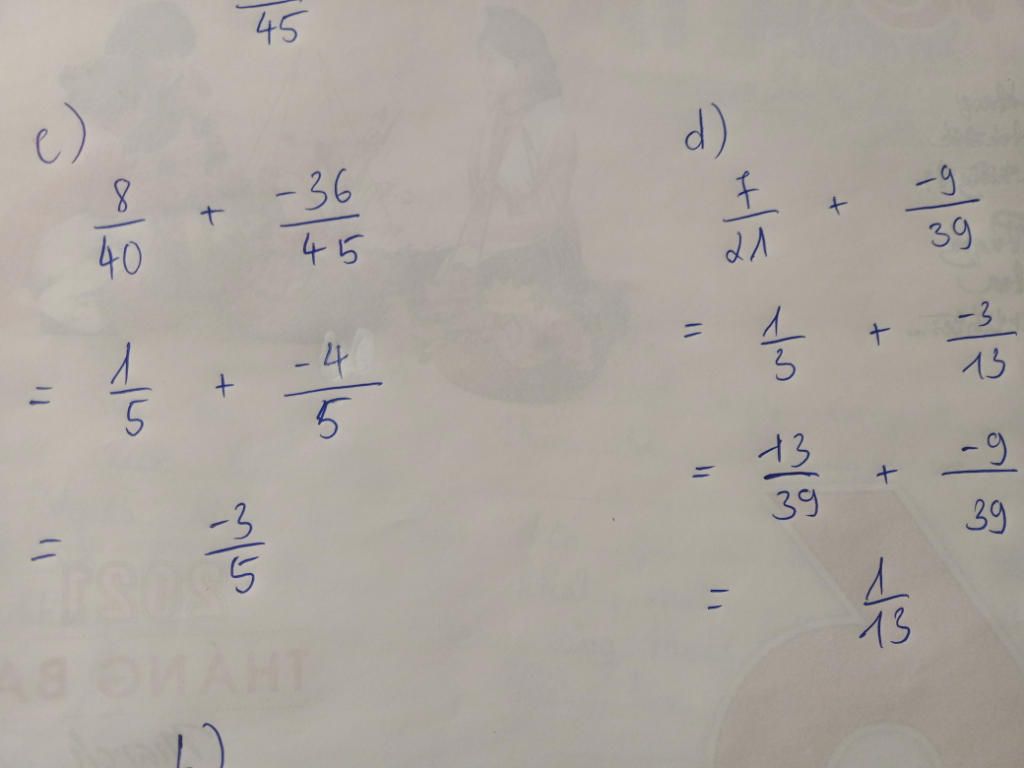 45
c)
8/40 + -36/45
= 1/5 + -4/5
= -3/5
d)
7/21 + -9/39
= 1/3 + -3/13
= 13/39 + -9/39
= 1/13
b)
2021
THÁNG BA
March